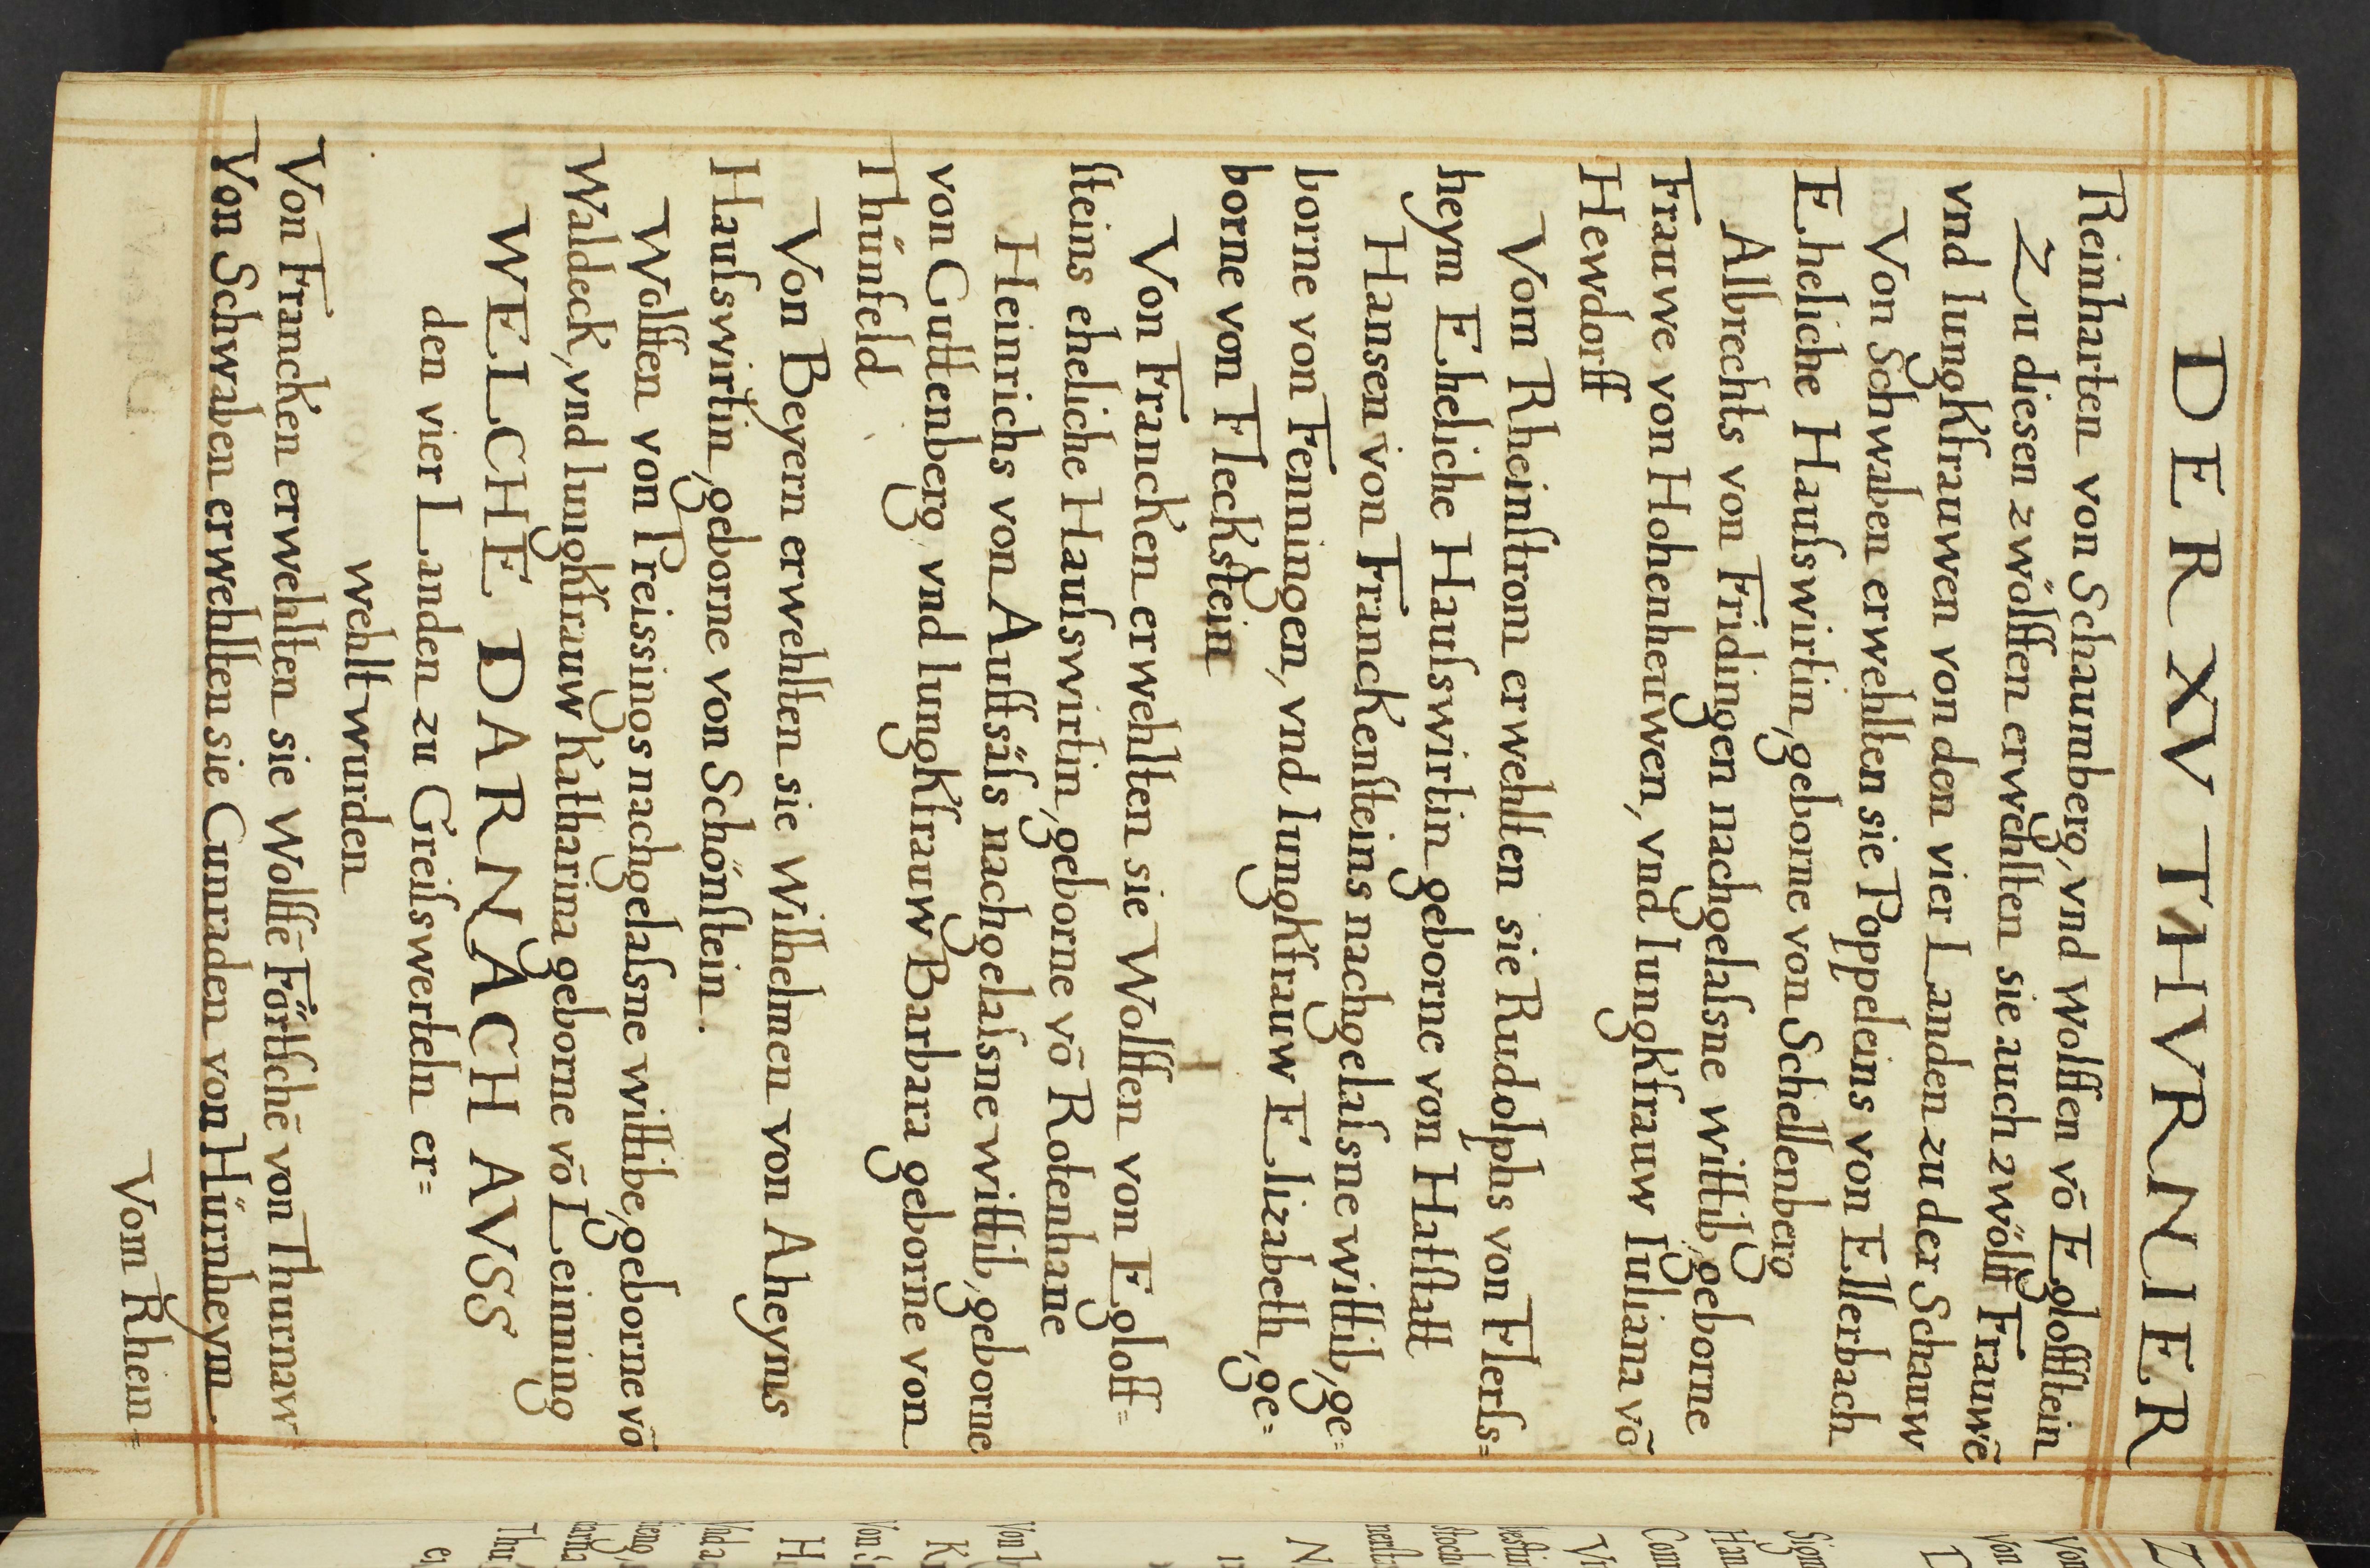 DER XV THVRNIER
Reinharten von Schaumberg, vnd Wolffen vō Egloffstein
Zu diesen zwölffen erwehlten sie auch zwölff Frauwē
vnd Iungkfrauwen von den vier Landen zu der Schauw
Von Schwaben erwehlten sie Poppeleins von Ellerbach
Eheliche Hausswirtin, geborne von Schellenberg
Albrechts von Fridingen nachgelassne wittib, geborne
Frauwe von Hohenheuwen, vnd Iungkfrauw Iuliana vō
Hewdorff
Vom Rheinstrom erwehlten sie Rudolphs von Flerss=
heym Eheliche Hausswirtin geborne von Hattstatt
Hansen von Franckensteins nachgelassne wittib, ge=
borne von Fenningen, vnd Iungkfrauw Elizabeth, ge=
borne von Fleckstein
Von Francken erwehlten sie Wolffen von Egloff=
steins eheliche Hausswirtin, geborne vō Rotenhane
Heinrichs von Auffsäss nachgelassne wittib, geborne
von Guttenberg vnd Iungkfrauw Barbara geborne von
Thünfeld
Von Beyern erwehlten sie Wilhelmen von Aheyms
Hausswirtin, geborne von Schönstein.
Wolffen von Preissings nachgelassne wittibe, geborne vō
Waldeck, vnd Iungkfrauw Katharina geborne vō Leinning
WELCHE DARNACH AVSS
den vier Landen zu Greisswerteln er=
wehlt wurden
Von Francken erwehlten sie Wolffē Förtschē von Thurnaw
Von Schwaben erwehlten sie Cunraden von Hürnheym.
Vom Rhein=